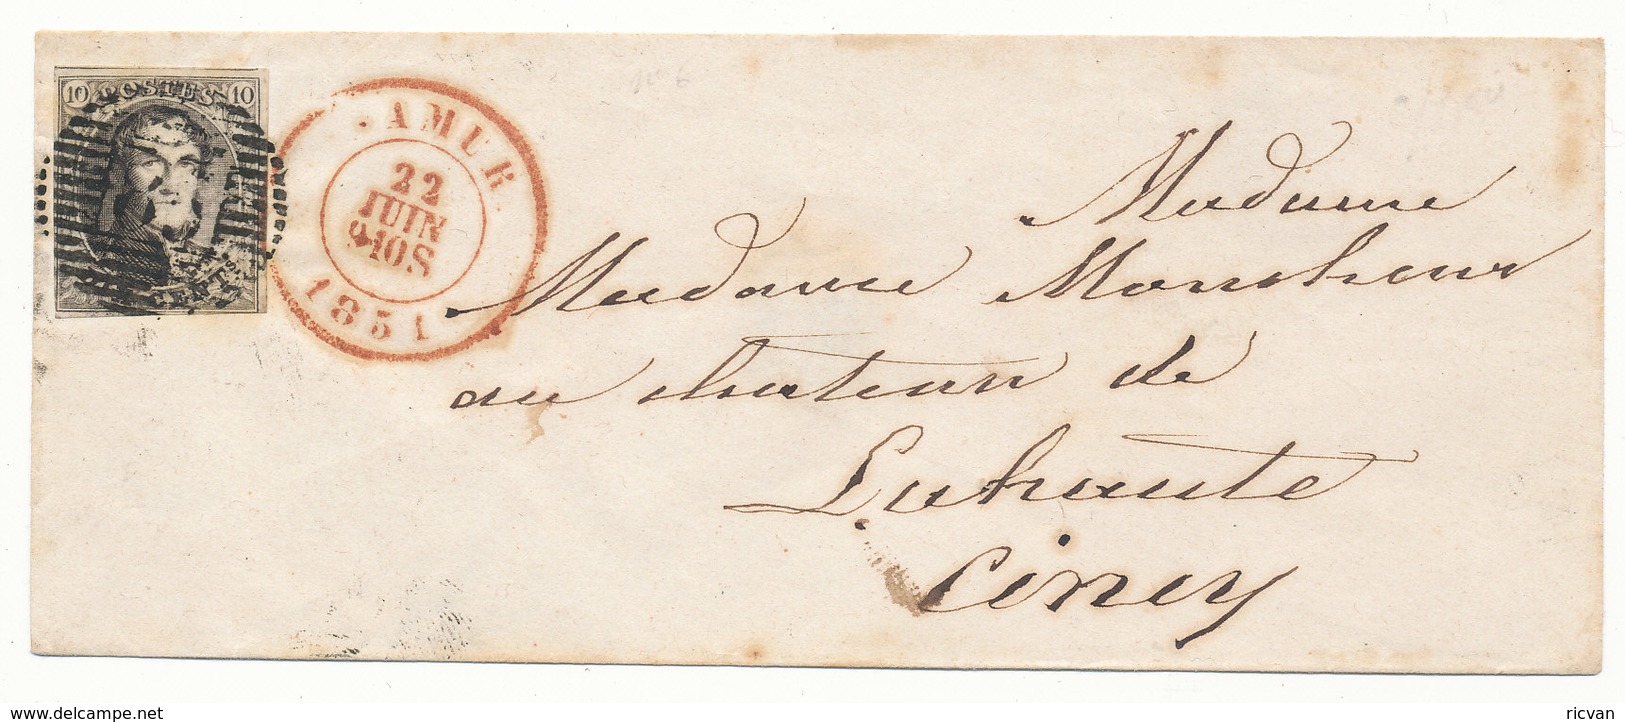 10 POSTES 10
AMUR
22
JUIN
9-10S
1851
Madame
Madame Moncheur
au chateau de
Lahaute
Ciney
www.delcampe.net
ricvan